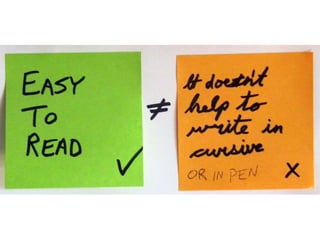 EASY
TO
READ
✓
≠
It doesn't
help to
write in
cursive
OR IN PEN
X